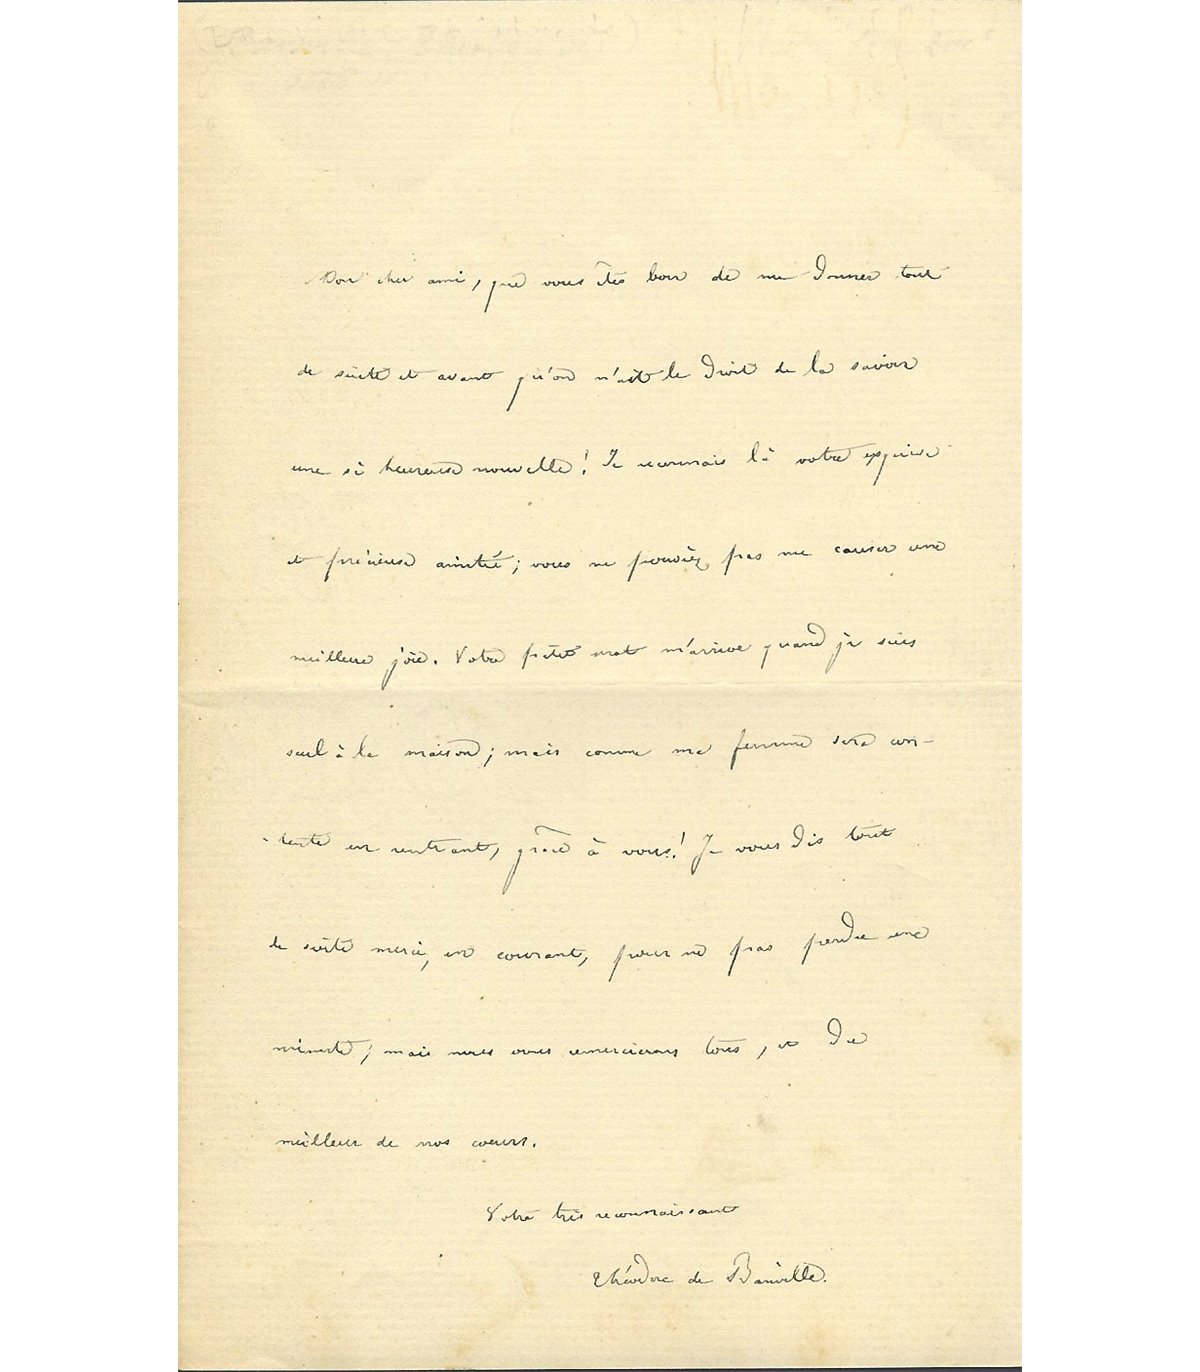 Mon cher ami, que vous êtes bon de me donner tout
de suite et avant qu'on n'ait le droit de la savoir
une si heureuse nouvelle! Je reconnais là votre exquise
et précieuse amitié; vous ne pouviez pas me causer une
meilleure joie. Votre petit mot m'arrive quand je suis
seul à la maison; mais comme ma femme sera con-
-tente en rentrant, grâce à vous! Je vous dis tout
de suite merci, en courant, pour ne pas perdre une
minute; mais nous vous remercierons tous, et du
meilleur de nos cœurs.
Votre très reconnaissant
Théodore de Banville.